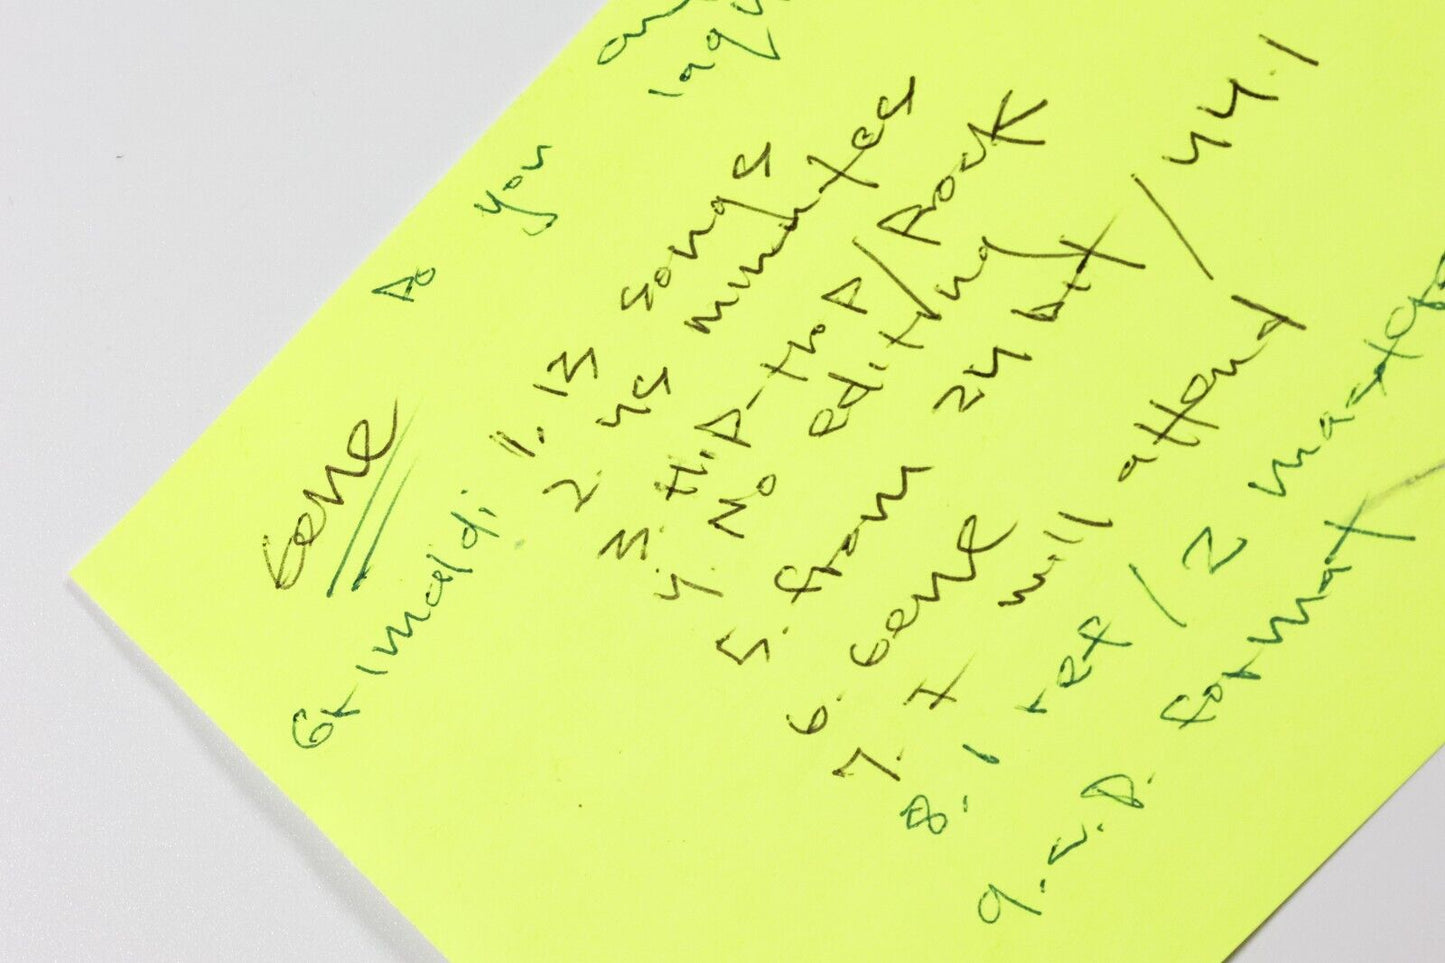 Gene
Grimaldi
Do you
1. 13 songs
2. 45 minutes
3. Hip-thop/Rock
4. No editing
5. from 24 bit / 44.1
6. Gene
7. I will attend
8. 1 ref / 2 masters
9. v.D. format